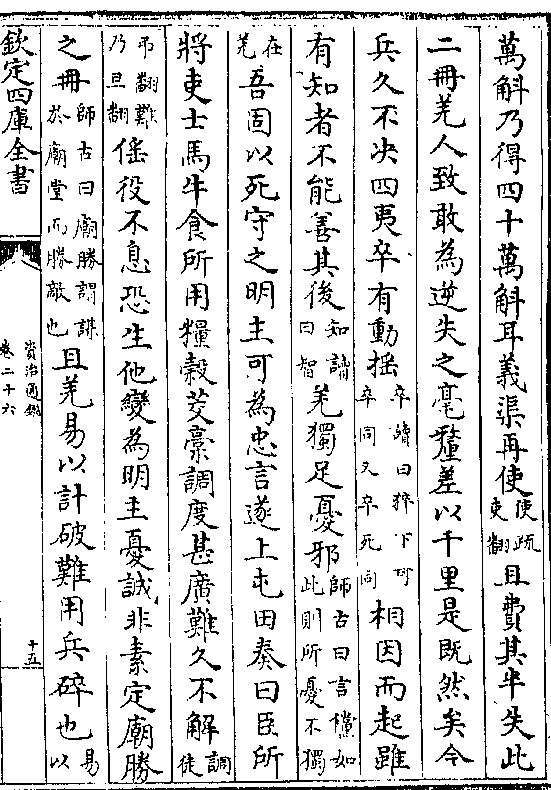 萬斛乃得四十萬斛耳義渠再使使疏吏翻且費其半失此
二冊羌人致敢為逆失之毫釐差以千里是既然矣今
兵久不決四夷卒有動搖卒讀曰猝下可卒同又卒死同相因而起雖
有知者不能善其後知讀曰智羌獨足憂邪師古曰言儻如此則所憂不獨
在羌吾固以死守之明主可為忠言遂上屯田奏曰臣所
將吏士馬牛食所用糧榖茭藁調度甚廣難久不解調徒
弔翻難乃旦翻徭役不息恐生他變為明主憂誠非素定廟勝
之冊師古曰廟勝謂謀於廟堂而勝敵也且羌易以計破難用兵碎也易以
欽定四庫全書
資治通鑑
卷二十六
十五